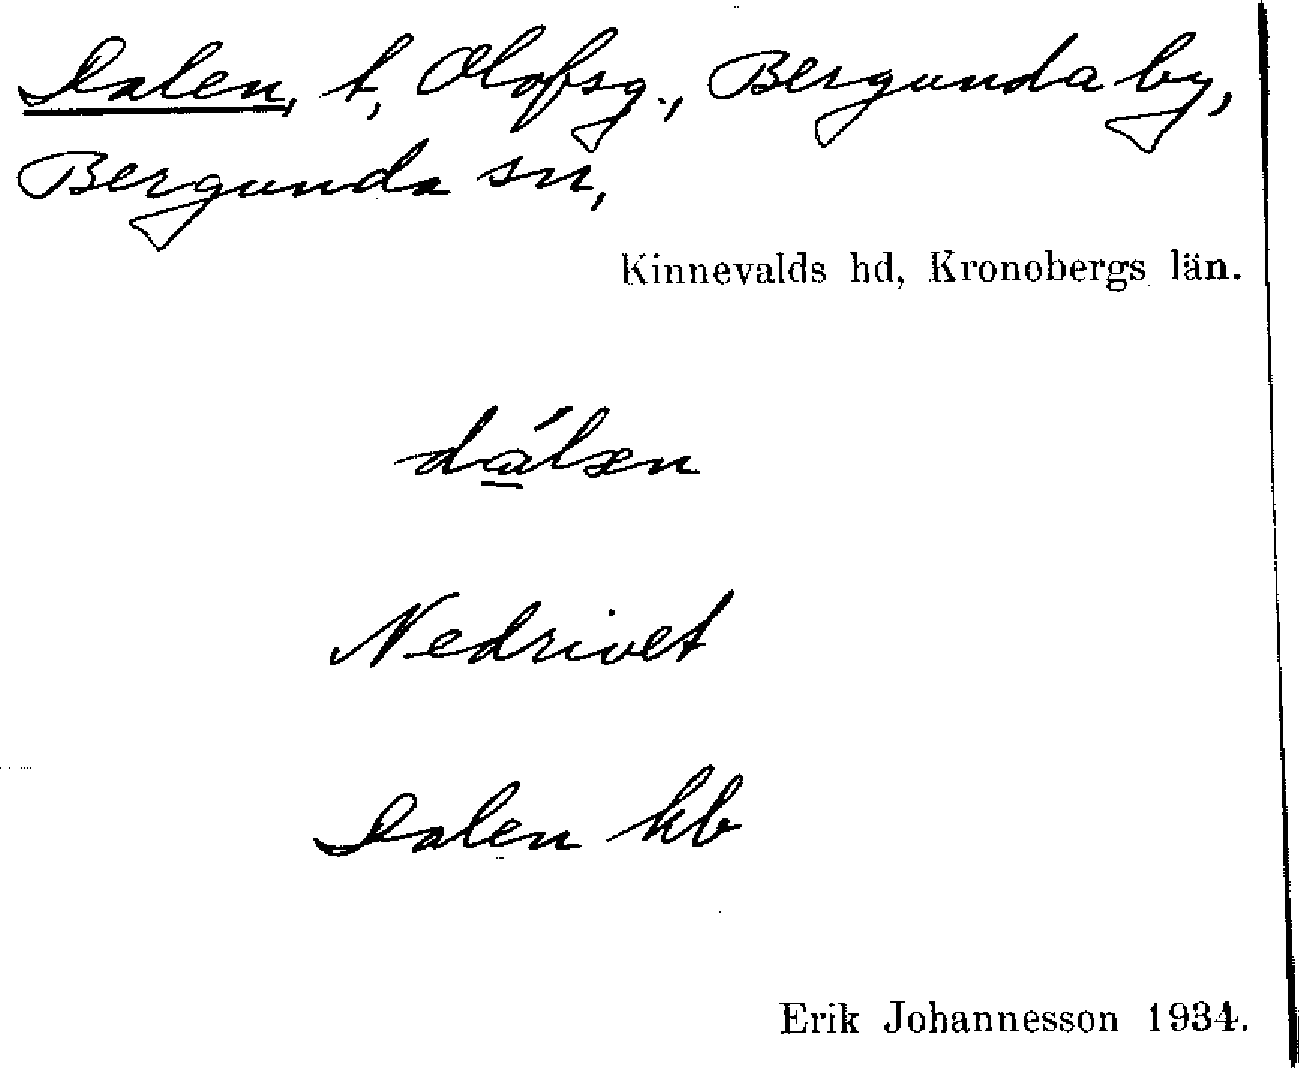 Dalen, t, Olofsg., Bergunda by,
Bergunda sn,
Kinnevalds hd, Kronobergs län.
dálæn
Nedrivet
Dalen kb
Erik Johannesson 1934.